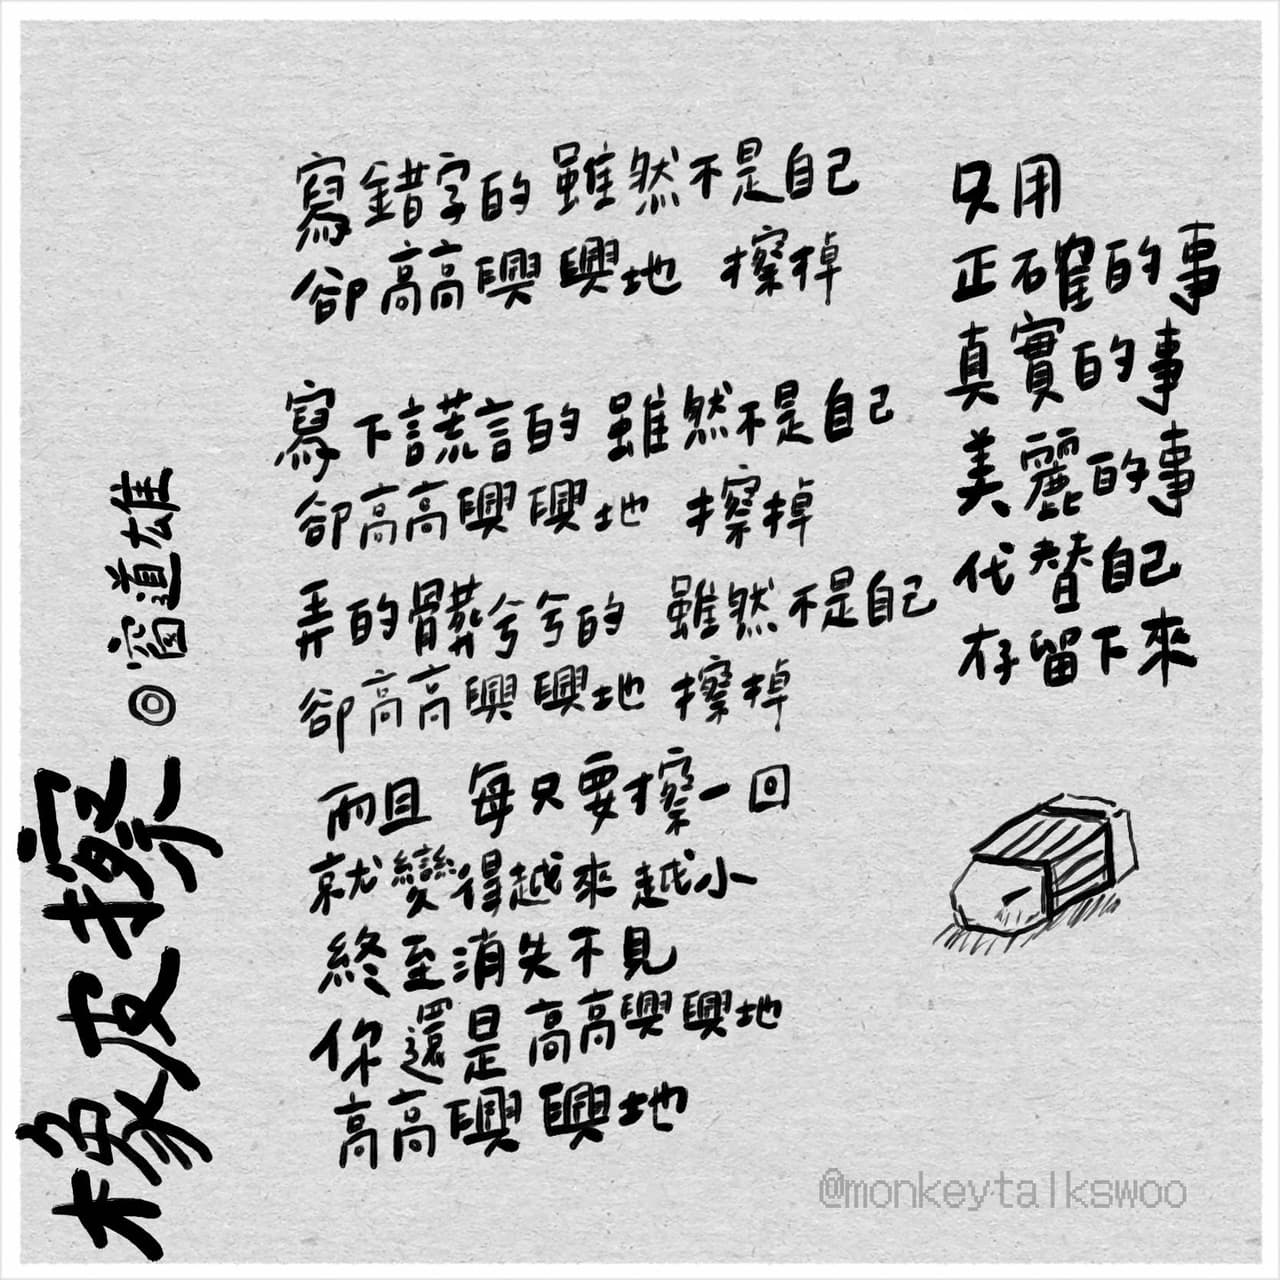 橡皮擦◎窗道雄
寫錯字的 雖然不是自己
卻高高興興地 擦掉
寫下謊言的 雖然不是自己
卻高高興興地 擦掉
弄的髒兮兮的 雖然不是自己
卻高高興興地 擦掉
而且 每只要擦一回
就變得越來越小
終至消失不見
你還是高高興興地
高高興興地
只用
正確的事
真實的事
美麗的事
代替自己
存留下來
@monkeytalkswoo